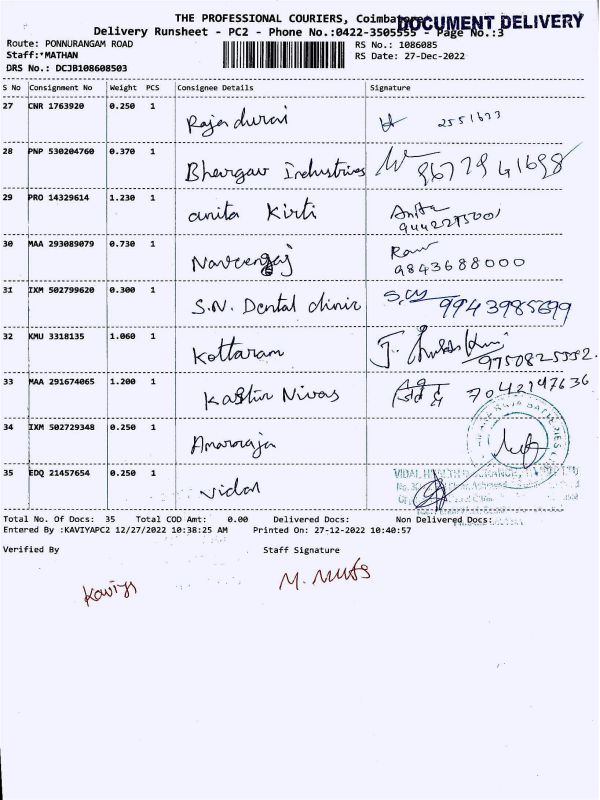 THE PROFESSIONAL COURIERS, Coimbatore
DOCUMENT DELIVERY
Delivery Runsheet - PC2 - Phone No.:0422-3505555 - Page No.:3
Route: PONNURANGAM ROAD
RS No.: 1086085
Staff:*MATHAN
RS Date: 27-Dec-2022
DRS No.: DCJB108608503
S No Consignment No Weight PCS Consignee Details Signature
27 CNR 1763920 0.250 1 Rajadurai 2551673
28 PNP 530204760 0.370 1 Bhargav Industries 9677941698
29 PRO 14329614 1.230 1 anita Kirti Anita
9442275001
30 MAA 293089079 0.730 1 Navrengaj Ram
9843688000
31 IXM 502799620 0.300 1 S.N. Dental clinic 9943985699
32 KMU 3318135 1.060 1 Kottaram 9750825552.
33 MAA 291674065 1.200 1 Kastur Nivas 7042197636
34 IXM 502729348 0.250 1 Amararaja
35 EDQ 21457654 0.250 1 Vidal
VIDAL HEALTH
Total No. Of Docs: 35 Total COD Amt: 0.00 Delivered Docs: Non Delivered Docs:
Entered By :KAVIYAPC2 12/27/2022 10:38:25 AM Printed On: 27-12-2022 10:40:57
Verified By Staff Signature
Kaviya